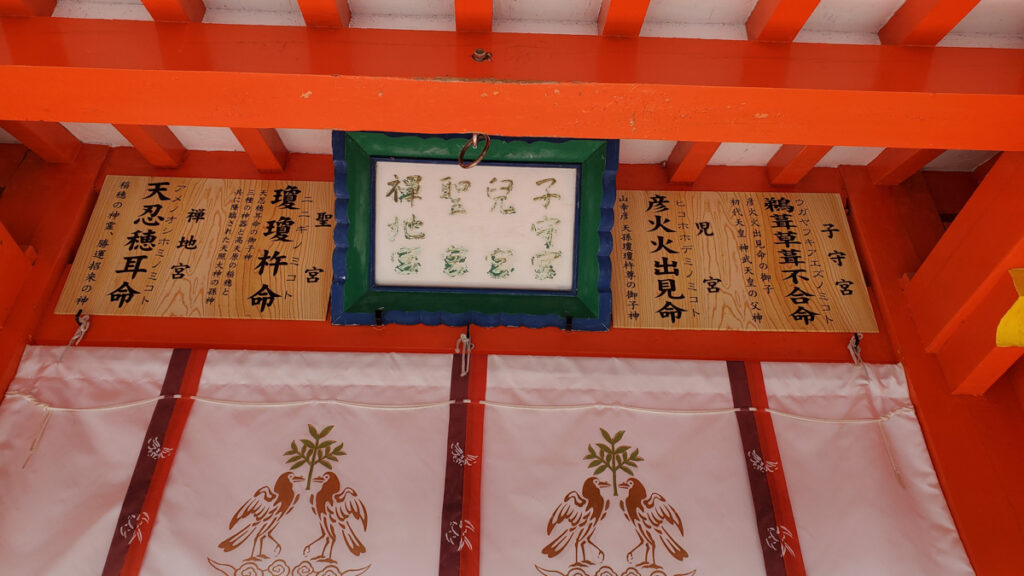 子守宮
ウガヤフキアエズノミコト
鵜茸草茸不合命
彦火火出見命の御子
初代天皇 神武天皇の父神
児宮
ヒコホホデミノミコト
彦火火出見命
山幸彦 天孫瓊瓊杵尊の御子神
子守宮
兒宮
聖宮
禪地宮
聖宮
ニニギノミコト
瓊瓊杵命
天忍穂耳命の御子神
三種の神器と高天原の稲穂と
共に降臨された天照大神の孫神
禅地宮
アメノオシホミミノミコト
天忍穂耳命
稲穂の神霊、勝運招来の神